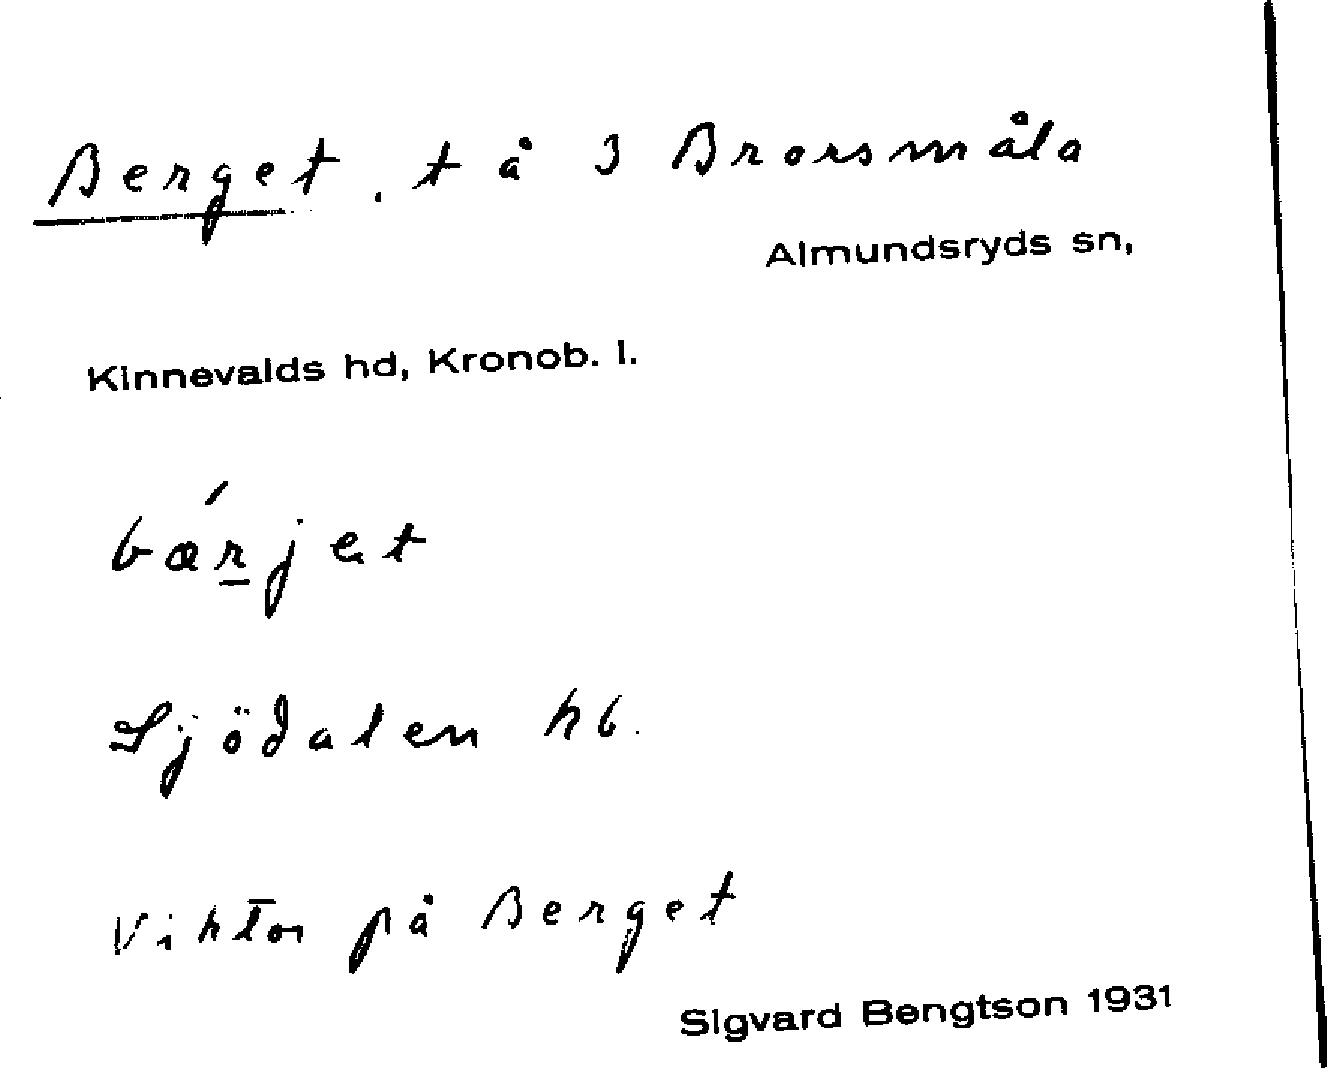 Berget, t å 3 Brorsmåla
Almundsryds sn,
Kinnevalds hd, Kronob. l.
bærjet
Sjödalen hb.
Viktor på Berget
Sigvard Bengtson 1931